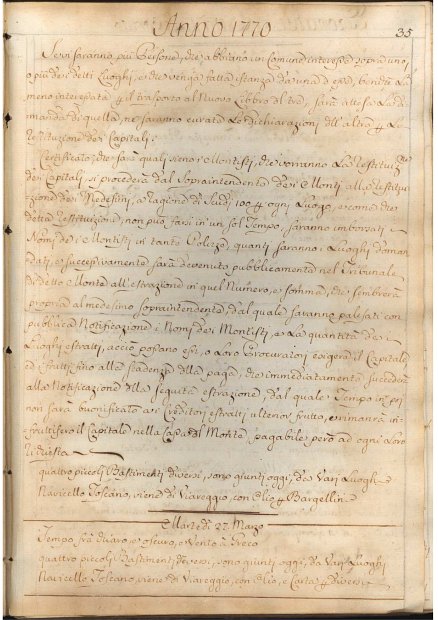 Anno 1770 35
Se vi saranno più Persone, che abbiano in Comune interesse sopra uno,
o più dei detti Luoghi, e che venga fatta istanza da una d'esse, benchè la
meno interessata per il trasporto al Nuovo Libro &c., sarà attesa la di-
manda di quella, ne saranno curate le dichiarazioni dell'altre per la
Restituzione dei Capitali.
Certificato, che sarà quali sieno i Montisti, che vorranno la Restituz.ne
dei Capitali, si procederà dal Sopraintendente dei Monti alla Restitu-
zione dei Medesimi, a Ragione di Scudi 100 per ogni Luogo, e come che
detta Restituzione, non può farsi in un sol Tempo, saranno imborsati i
Nomi dei Montisti in tante Polizze, quanti saranno i Luoghi doman-
dati, e successivamente sarà devenuto pubblicamente nel Tribunale
di detto Monte all'estrazione in quel Numero, e somma, che sembrerà
propria al medesimo Sopraintendente, dal quale saranno palesati con
pubblica Notificazione i Nomi dei Montisti, e la quantità dei
Luoghi estratti, acciò possano essi, o loro Procuratori esigere il Capitale
ed i frutti fino alla scadenza della paga, che immediatamente succederà
alla Notificazione della seguita estrazione, dal quale Tempo in poi
non sarà buonificato ai Creditori estratti ulterior frutto, e rimarrà in-
fruttifero il Capitale nella Cassa del Monte, pagabile però ad ogni loro
richiesta
quattro piccoli Bastimenti diversi, sono giunti oggi, da Vari Luoghi
Navicello Toscano, viene di Viareggio, con Olio per Bargellini
Martedì 27. Marzo
Tempo, frà chiaro, e oscuro, e Vento à Greco
quattro piccoli Bastimenti diversi, sono giunti oggi, da Vari Luoghi
Navicello Toscano, viene di Viareggio, con Olio, e Carta per Diversi